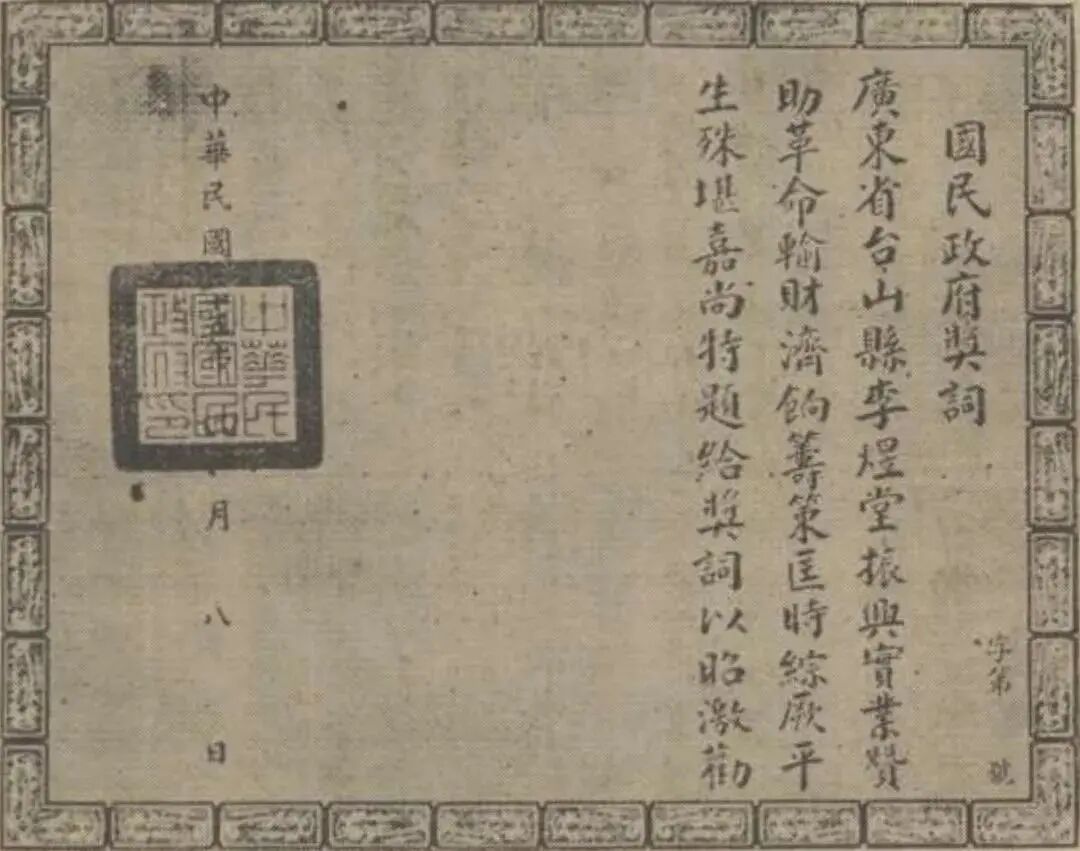 國民政府獎詞
廣東省台山縣李煜堂振興實業贊
助革命輸財濟餉籌策匡時綜厥平
生殊堪嘉尚特題給獎詞以昭激勸
字第 號
中華民國 月八日
中華民
國國民
政府印